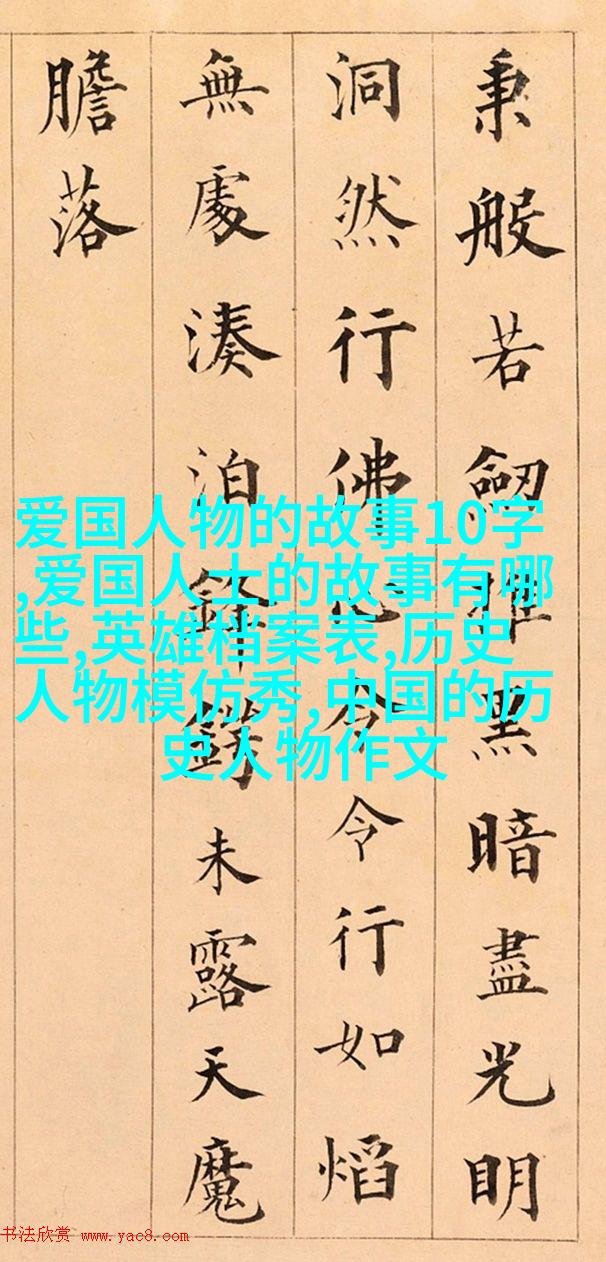 秉般若劒黑暗盡光明
洞然行佛令令行如熖
無處湊泊鋒鍔未露天魔
膽落
爱国人物的故事10字
,爱国人士的故事有哪
些,英雄档案表,历史
人物模仿秀,中国的历
史人物作文
书法欣赏 www.yac8.com